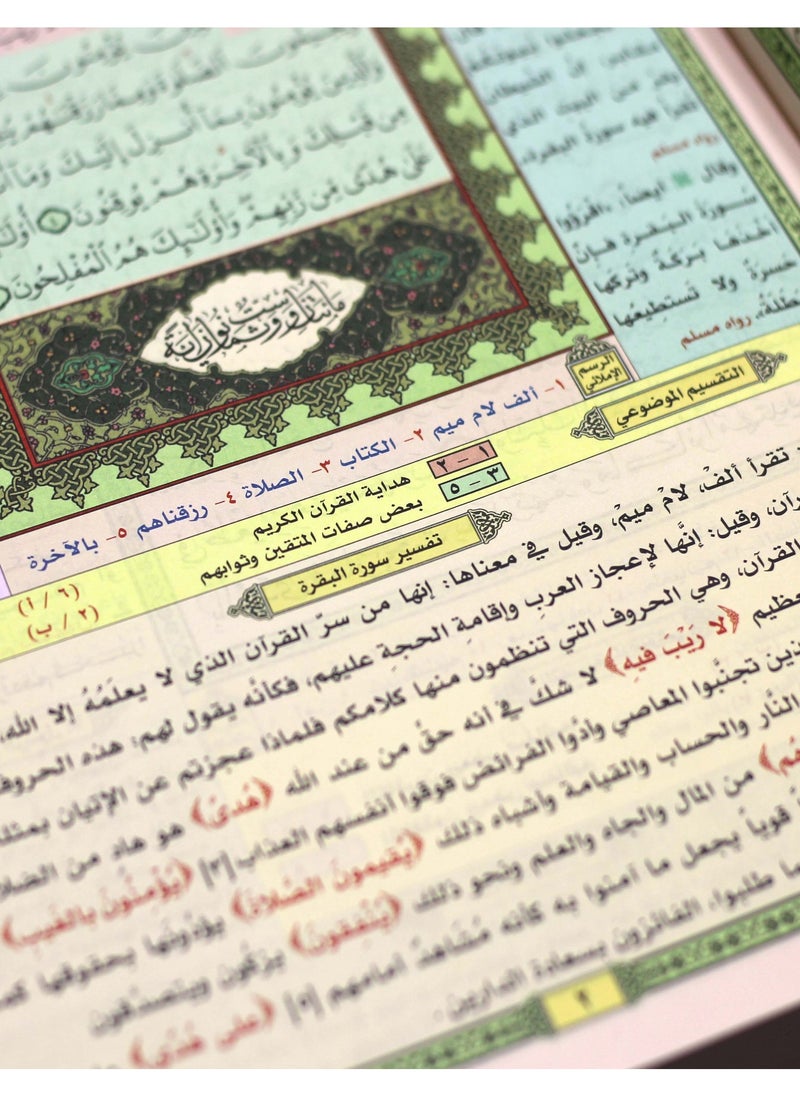 وَالَّذِينَ يُؤْمِنُونَ بِمَا أُنزِلَ إِلَيْكَ وَمَا
مِن قَبْلِكَ وَبِالْآخِرَةِ هُمْ يُوقِنُونَ ٤ أُوْلَٰئِكَ
عَلَىٰ هُدًى مِّن رَّبِّهِمْ وَأُوْلَٰئِكَ هُمُ الْمُفْلِحُونَ
مائتان وست وثمانون آية
الشيطان
من البيت الذي
تقرأ فيه سورة البقرة.
رواه مسلم
وقال ﷺ أيضاً: «اقرؤوا
سورة البقرة فإنَّ
أخذها بركة وتركها
حسرةٌ ولا تستطيعُها
البَطَلَةُ. رواه مسلم
الرسم
الإملائي
١- ألف لام ميم ٢- الكتاب ٣- الصلاة ٤- رزقناهم ٥- بالآخرة
التقسيم الموضوعي
١ - ٢ هداية القرآن الكريم
٣ - ٥ بعض صفات المتقين وثوابهم
(٦ / أ)
(٢ / ب)
تفسير سورة البقرة
تقرأ ألفْ، لامْ ميمْ، وقيل في معناها: إنها من سرّ القرآن الذي لا يعلَمُهُ إلا الله،
وقيل: إنَّها لإعجاز العربِ وإقامةِ الحجةِ عليهم، فكأنَّه يقول لهم: هذه الحروف
القرآن، وهي الحروف التي تنظمون منها كلامكم فلماذا عجزتم عن الإتيان بمثله
﴿لا رَيْبَ فيهِ﴾ لا شكَّ في أنه حقٌّ من عند الله ﴿هُدىً﴾ هو هاد من الضلال
تجنَّبوا المعاصي وأدّوا الفرائض فوقوا أنفسهم العذاب [٣] ﴿يُؤْمِنُونَ بالغَيبِ﴾
النَّار والحساب والقيامة وأشياء ذلك ﴿يُقيمونَ الصَّلاةَ﴾ يؤدّونها بحقوقها
من المال والجاه والعلم ونحو ذلك ﴿يُنْفِقونَ﴾ يزكّون ويتصدّقون
قوياً يجعل ما آمنوا به كأنه مُشاهدٌ أمامهم [٥] ﴿على هُدًى﴾
طلبوا، الفائزون بسعادة الدارين.
٢